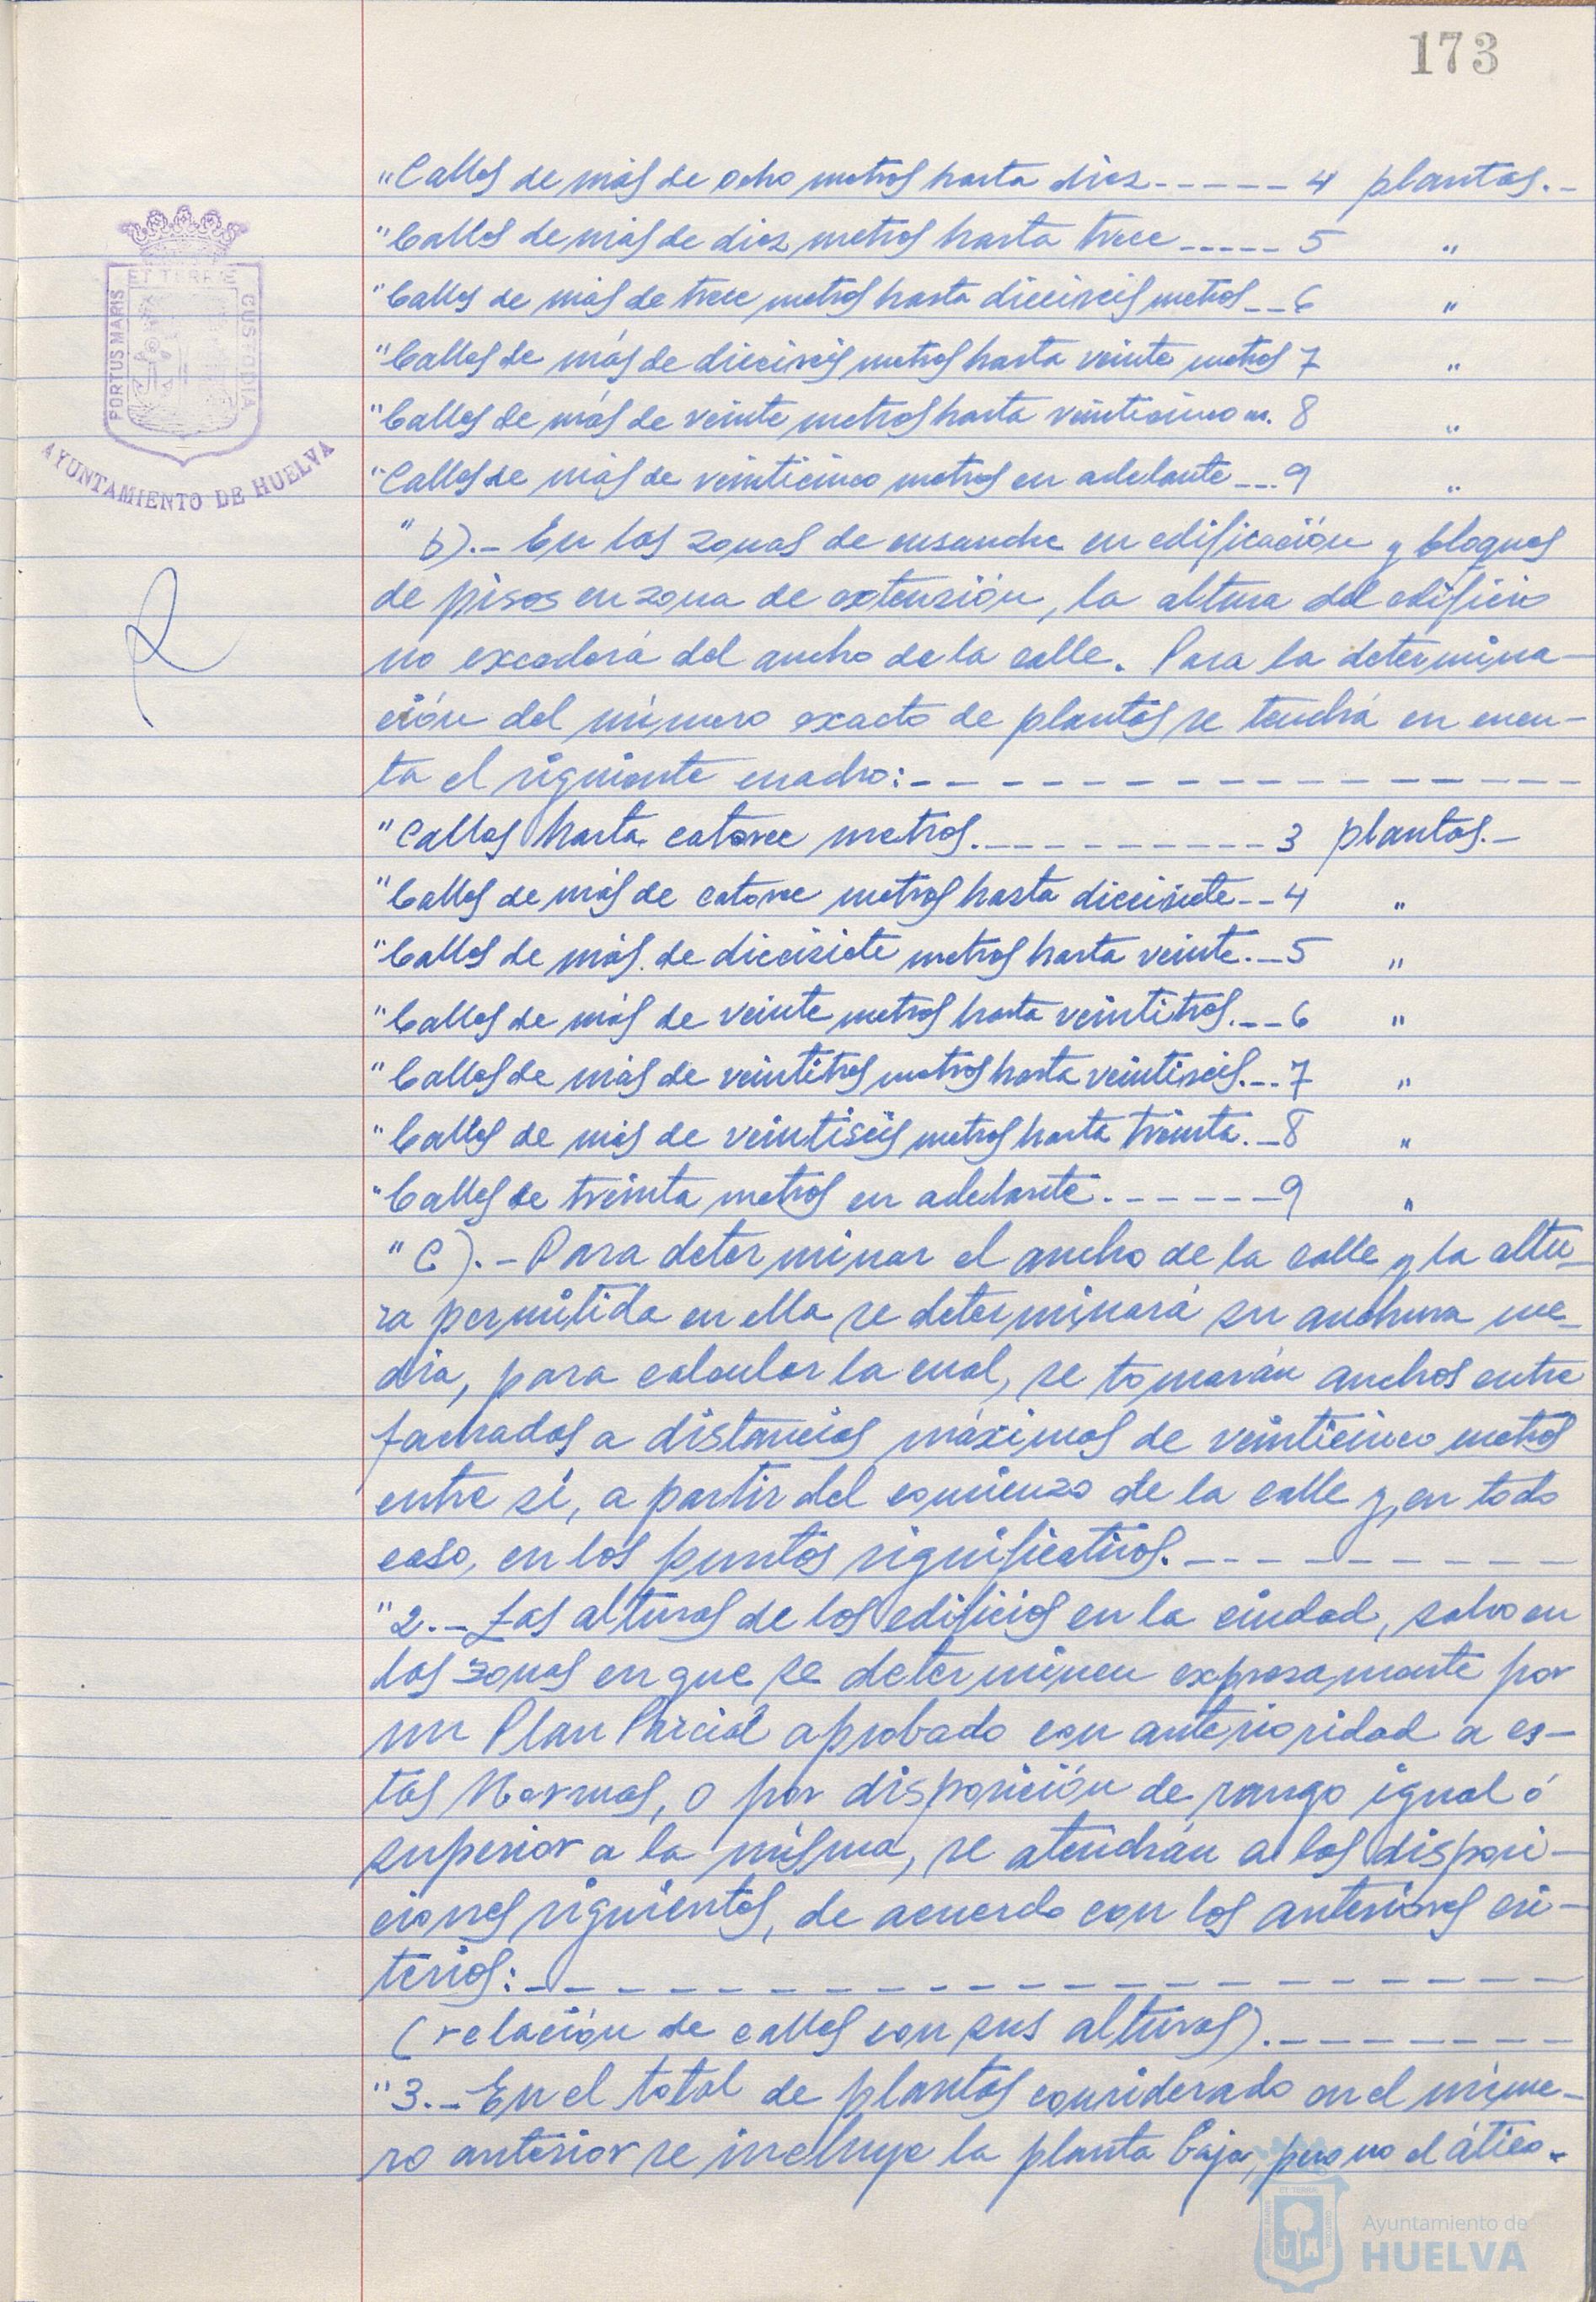 173
"Calles de más de ocho metros hasta diez------4 plantas.-
"Calles de más de diez metros hasta trece-----5 "
"Calles de más de trece metros hasta dieciseis metros---6 "
"Calles de más de dieciseis metros hasta veinte metros 7 "
"Calles de más de veinte metros hasta veinticinco m. 8 "
"Calles de más de veinticinco metros en adelante---9 "
ET TERRÆ
PORTUS MARIS
CUSTODIA
AYUNTAMIENTO DE HUELVA
"b).- En las zonas de ensanche en edificación y bloques
de pisos en zona de extensión, la altura del edificio
no excederá del ancho de la calle. Para la determina-
ción del número exacto de plantas se tendrá en cuen-
ta el siguiente cuadro:- - - - - - - - - - - - - - -
"Calles hasta catorce metros.- - - - - - - - - -3 plantas.-
"Calles de más de catorce metros hasta diecisiete--4 "
"Calles de más de diecisiete metros hasta veinte.--5 "
"Calles de más de veinte metros hasta veintitres.---6 "
"Calles de más de veintitres metros hasta veintiseis.---7 "
"Calles de más de veintiseis metros hasta treinta.-8 "
"Calles de treinta metros en adelante.------9 "
"C).- Para determinar el ancho de la calle y la altu-
ra permitida en ella se determinará su anchura me-
dia, para calcular la cual, se tomarán anchos entre
fachadas a distancias máximas de veinticinco metros
entre sí, a partir del comienzo de la calle y, en todo
caso, en los puntos significativos.- - - - - - - - -
"2.- Las alturas de los edificios en la ciudad, salvo en
las zonas en que se determinen expresamente por
un Plan Parcial aprobado con anterioridad a es-
tas Normas, o por disposición de rango igual ó
superior a la misma, se atendrán a las disposi-
ciones siguientes, de acuerdo con los anteriores cri-
terios:- - - - - - - - - - - - - - - - - - -
(relación de calles con sus alturas).- - - - - - - -
"3.- En el total de plantas considerado en el núme-
ro anterior se incluye la planta baja, pero no el ático.-
Ayuntamiento de
HUELVA